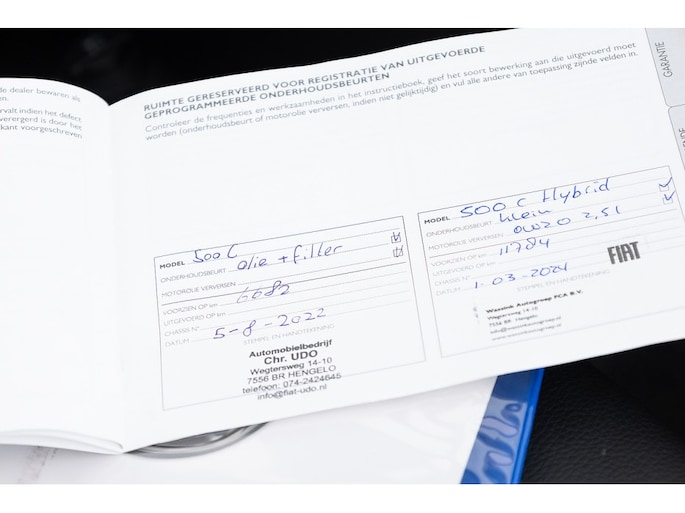 de dealer bewaren als
en.
ervalt indien het defect
verergerd is door het
kant voorgeschreven
RUIMTE GERESERVEERD VOOR REGISTRATIE VAN UITGEVOERDE
GEPROGRAMMEERDE ONDERHOUDSBEURTEN
Controleer de frequenties en werkzaamheden in het instructieboek, geef het soort bewerking aan die uitgevoerd moet
worden (onderhoudsbeurt of motorolie verversen, indien niet gelijktijdig) en vul alle andere van toepassing zijnde velden in.
GARANTIE
MODEL 500 C
ONDERHOUDSBEURT olie + filter
MOTOROLIE VERVERSEN
VOORZIEN OP km 6682
UITGEVOERD OP km
CHASSIS N°
DATUM 5-8-2022
STEMPEL EN HANDTEKENING
Automobielbedrijf
Chr. UDO
Wegtersweg 14-10
7556 BR HENGELO
telefoon: 074-2424645
info@fiat-udo.nl
MODEL 500 C Hybrid
ONDERHOUDSBEURT klein
MOTOROLIE VERVERSEN 0W20 2,5l
VOORZIEN OP km 11784
UITGEVOERD OP km
CHASSIS N°
DATUM 1-03-2024
STEMPEL EN HANDTEKENING
FIAT
Wassink Autogroep FCA B.V.
Wegtersweg 14-10
7556 BR Hengelo